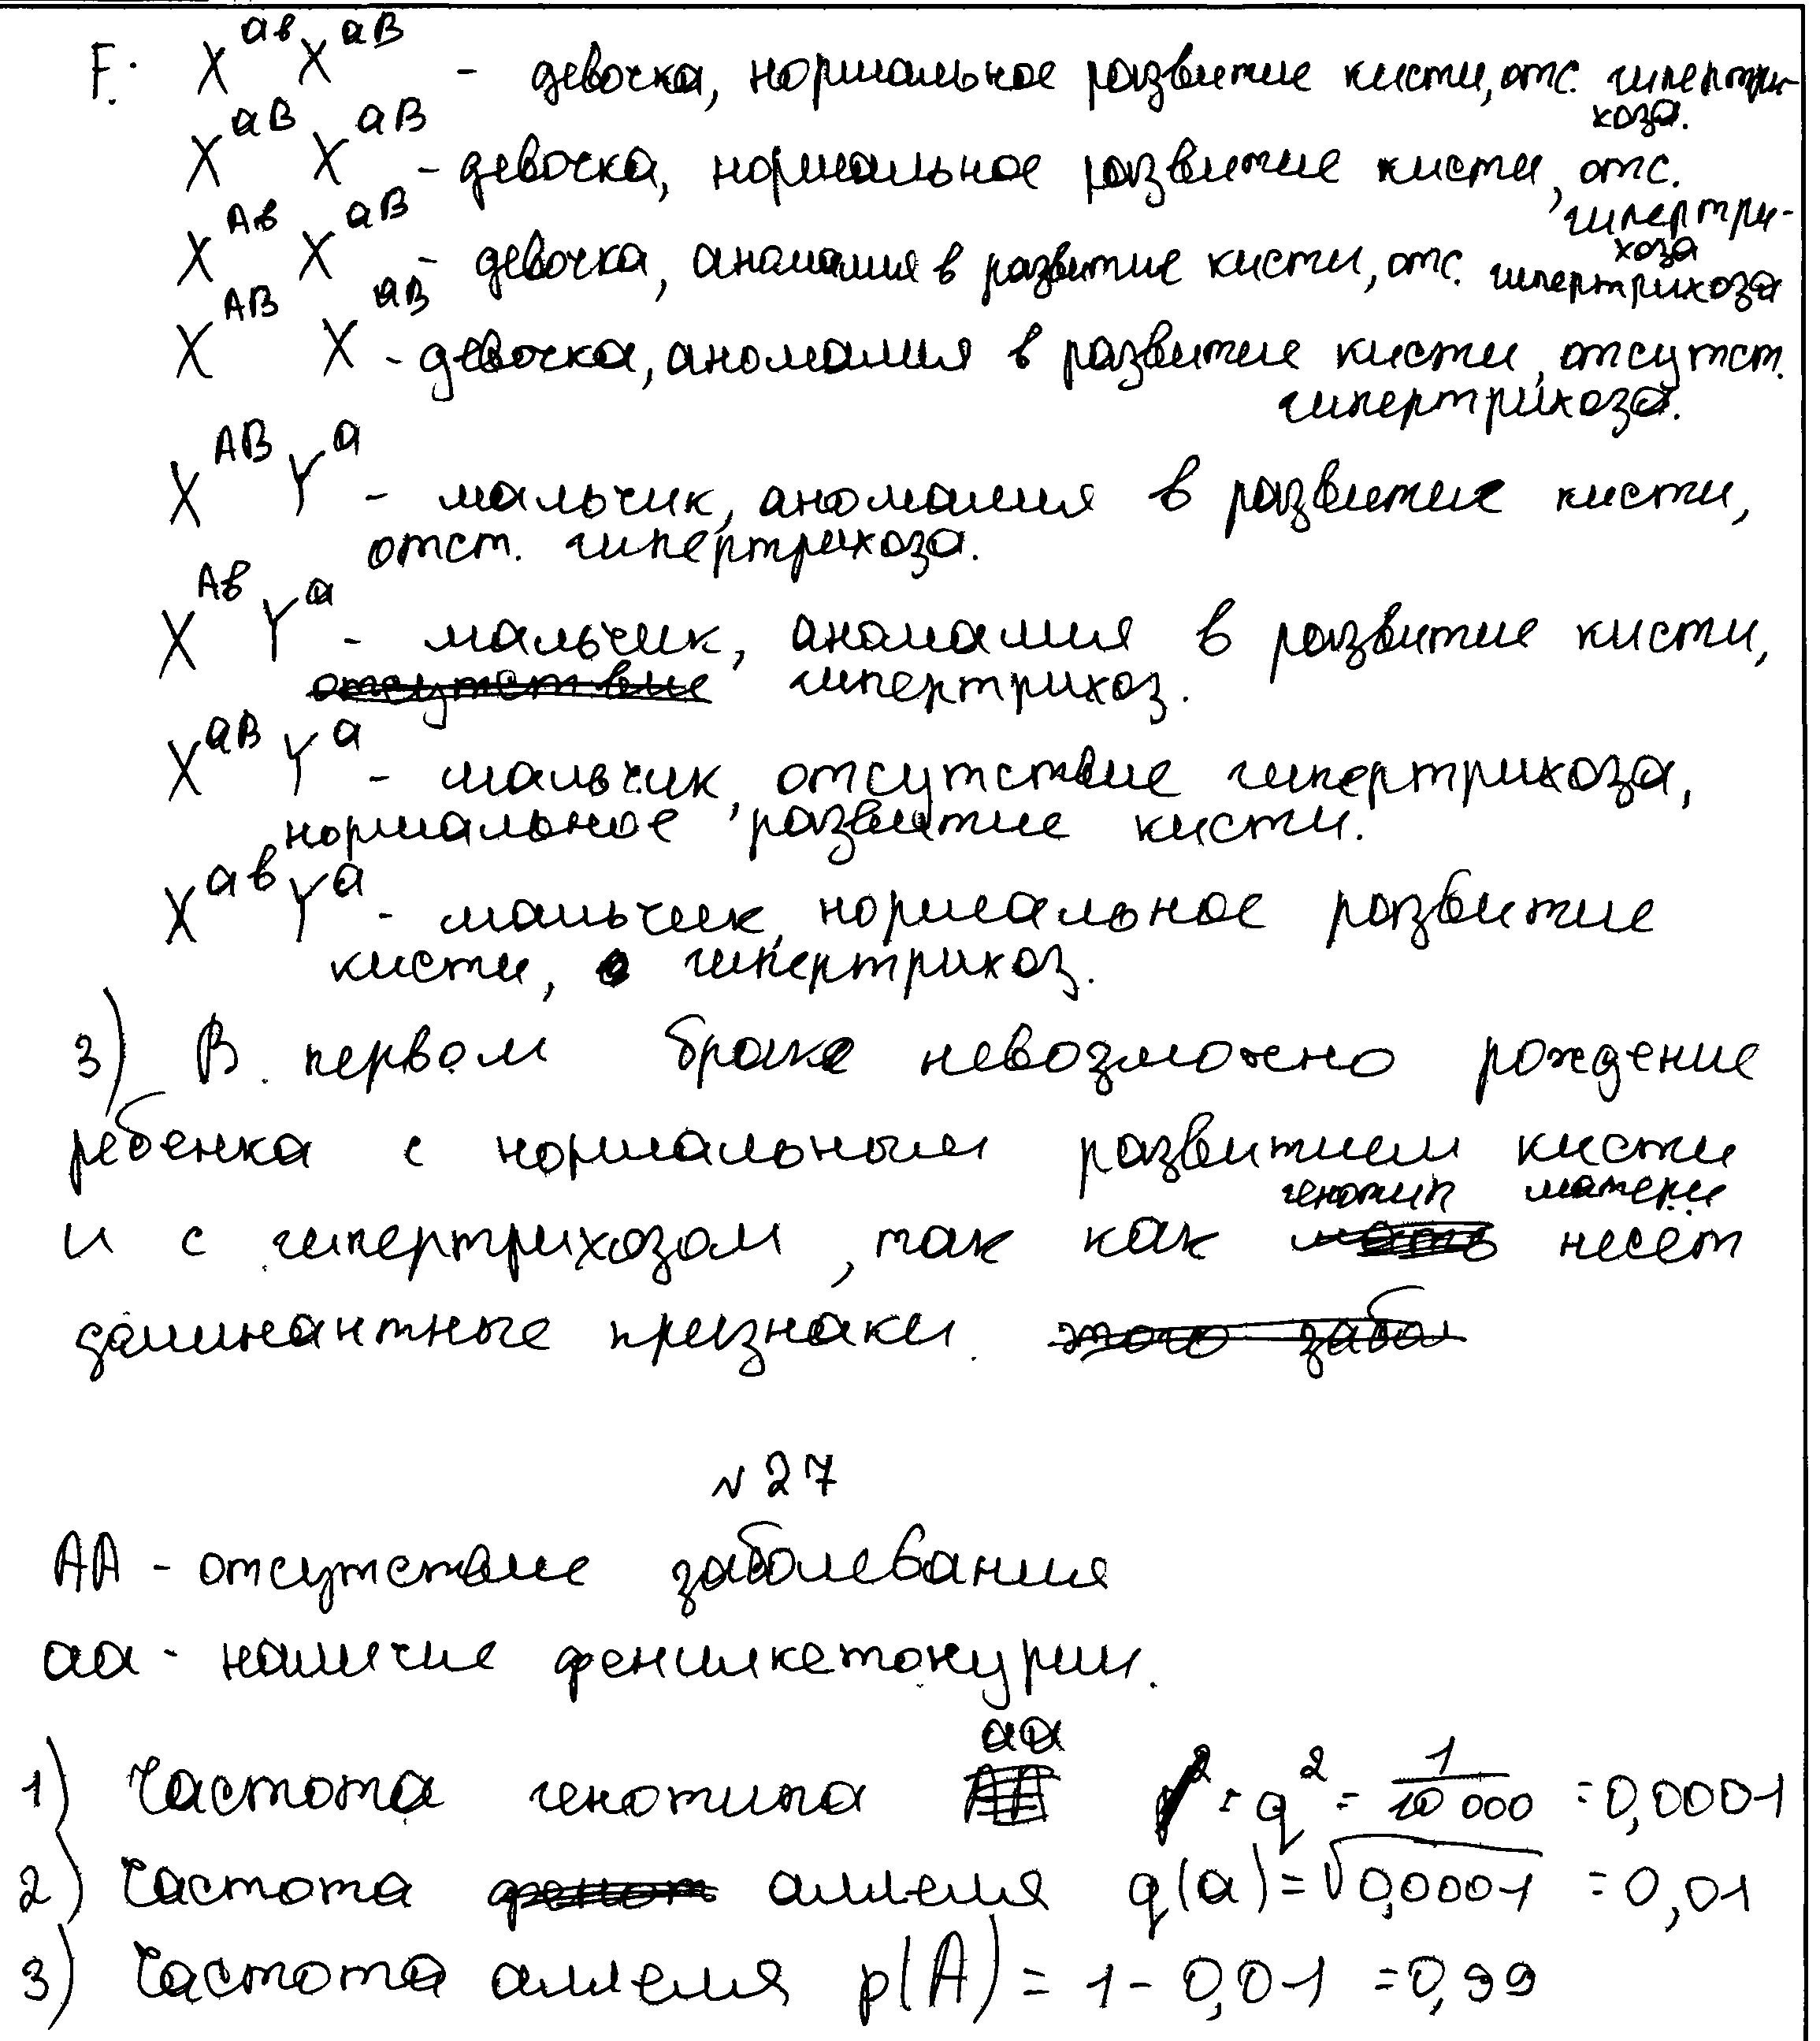 F: X^ав X^аВ - девочка, нормальное развитие кисти, отс. гипертри-
хоза.
X^аВ X^аВ - девочка, нормальное развитие кисти, отс.
гипертри-
хоза
X^Ав X^аВ - девочка, аномалия в развитие кисти, отс. гипертрихоза
X^АВ X^аВ - девочка, аномалия в развитие кисти, отсутст.
гипертрихоза.
X^АВ Y^а - мальчик, аномалия в развитие кисти,
отст. гипертрихоза.
X^Ав Y^а - мальчик, аномалия в развитие кисти,
отсутствие гипертрихоз.
X^аВ Y^а - мальчик, отсутствие гипертрихоза,
нормальное развитие кисти.
X^ав Y^а - мальчик, нормальное развитие
кисти, гипертрихоз.
3) В первом браке невозможно рождение
ребенка с нормальным развитием кисти
генотип матери
и с гипертрихозом, так как мать несёт
доминантные признаки. этого забол
№27
АА - отсутствие заболевания
аа - наличие фенилкетонурии.
аа
1) Частота генотипа АА p² = q² = 1/10 000 = 0,0001
2) Частота фенот аллеля q(а) = √0,0001 = 0,01
3) Частота аллеля p(А) = 1 - 0,01 = 0,99